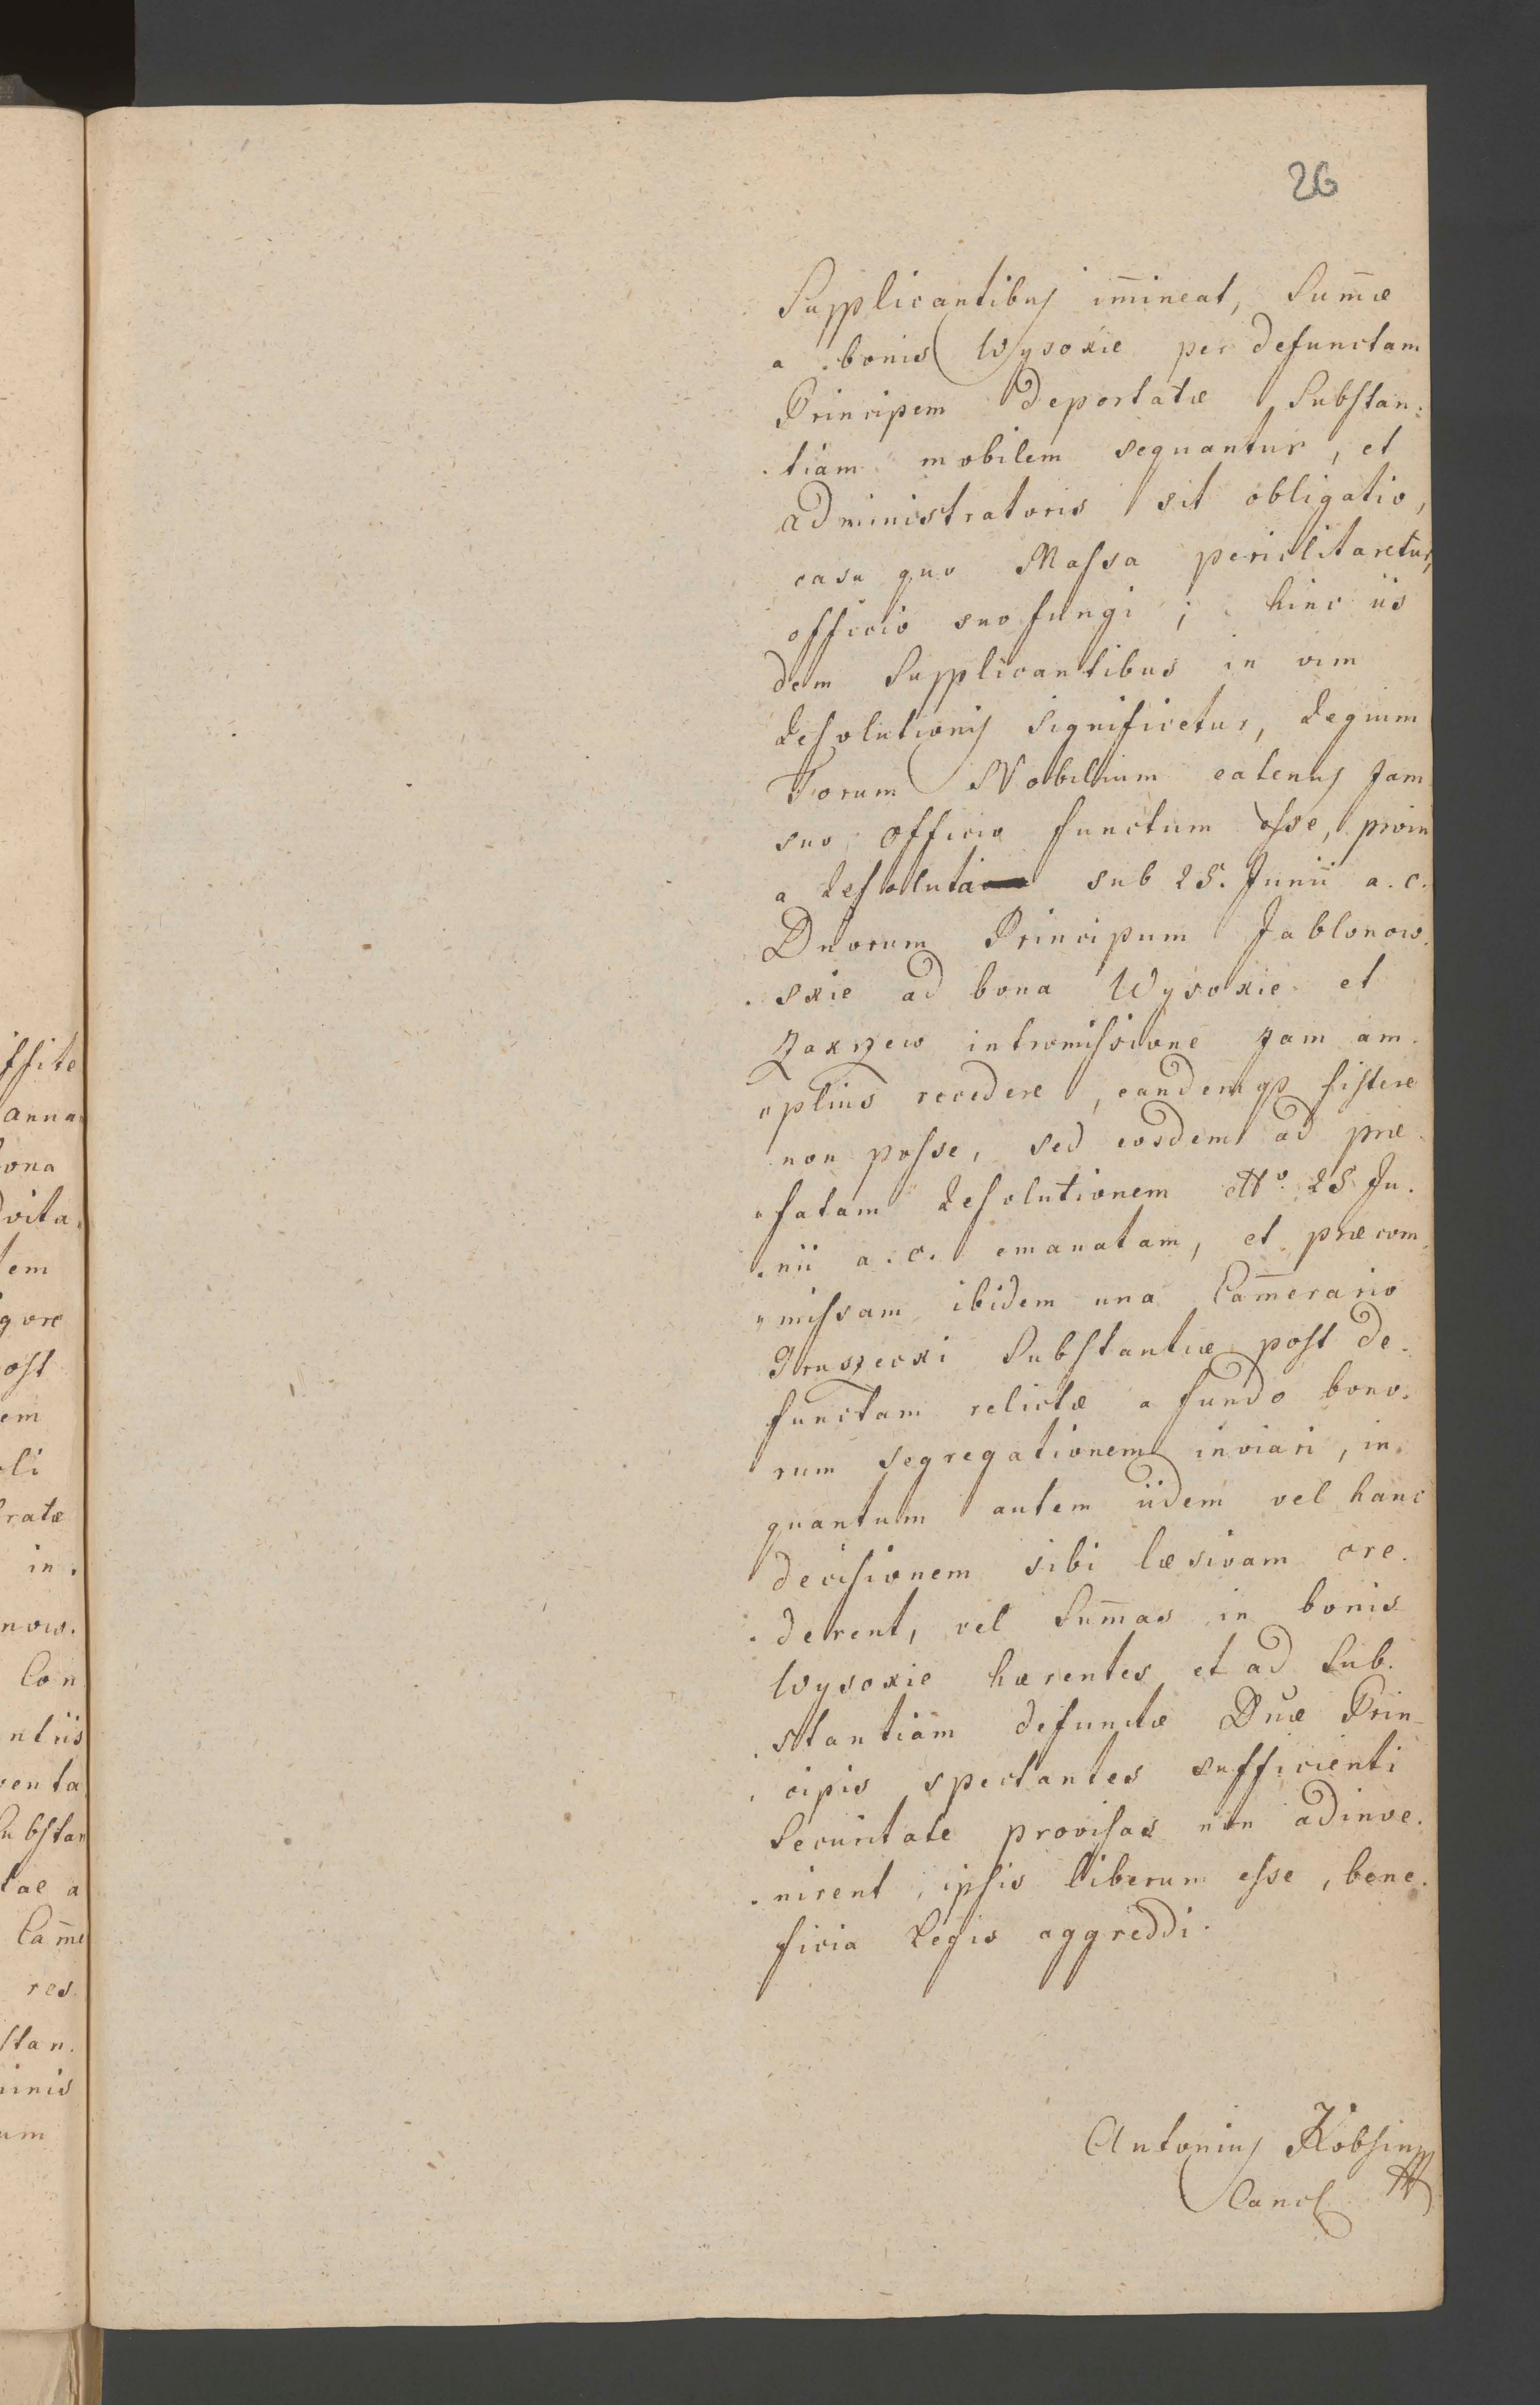 26
Supplicantibus im̄ineat, Sum̄æ
a bonis Wysokie per defunctam
Principem deportatæ Substan-
tiam mobilem sequantur, et
administratoris sit obligatio,
casu quo Massa periclitaretur,
officio suo fungi; hinc iis
dem Supplicantibus in vim
Resolutionis significetur, Regium
Forum Nobilium eatenus jam
suo officio functum esse, proin
a Resoluta sub 25. Junii a. c.
Dnorum Principum Jablonow-
skie ad bona Wysokie et
Zakrzew intromissione jam am-
plius recedere, eandemq̃ sistere
non posse, sed eosdem ad præ-
fatam Resolutionem ddto. 25 Ju-
nii a. c. emanatam, et præcom-
missam ibidem una Cam̄erario
Gruszecki Substantiæ post de-
functam relictæ a fundo bono-
rum segregationem inviari, in
quantum autem iidem vel hanc
decisionem sibi læsivam cre-
derent, vel Sum̄as in bonis
Wysokie hærentes et ad Sub-
stantiam defunctæ Dnæ Prin-
cipis spectantes sufficienti
Securitate provisas non adinve-
nirent, ipsis liberum esse, bene-
ficia Legis aggreddi.
Antonius
Canc
ssite
anna
bona
vita
tem
gore
post
em
oli
ratæ
in
now.
Con
ntiis
senta
Substan
tae a
Cam̄e
res
stan.
minis
um